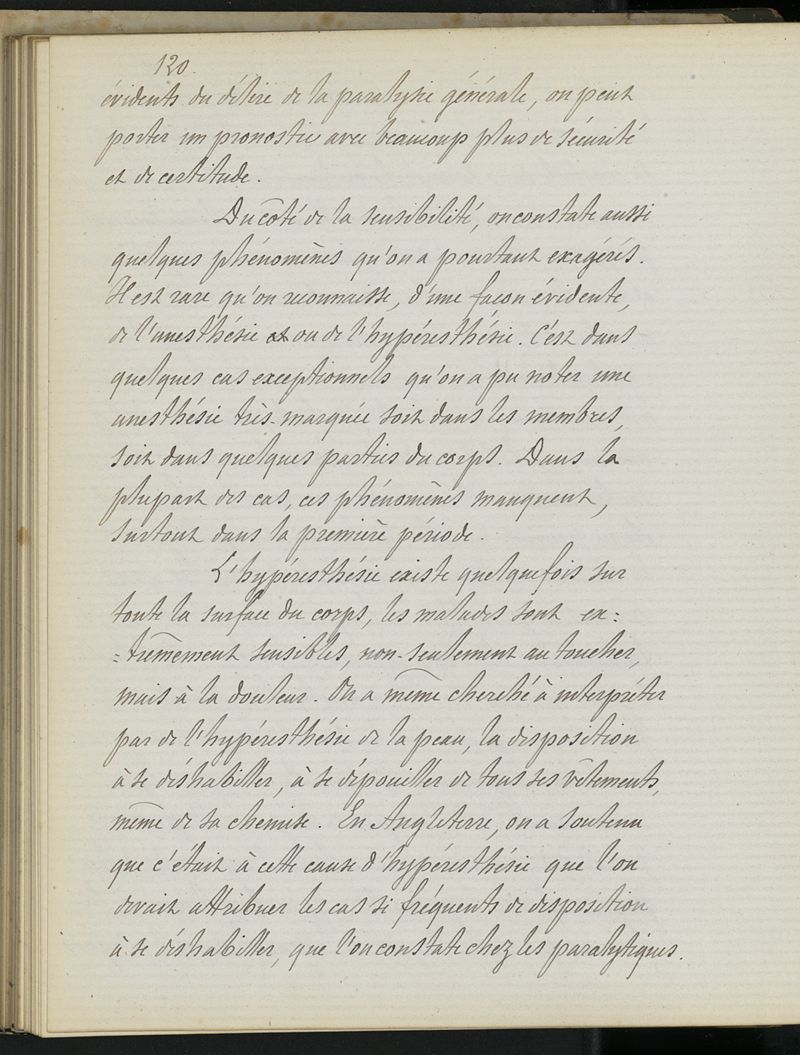 120
évidents du délire de la paralysie générale, on peut
porter un pronostic avec beaucoup plus de sécurité
et de certitude.
Du côté de la sensibilité, on constate aussi
quelques phénomènes qu'on a pourtant exagérés.
Il est rare qu'on reconnaisse, d'une façon évidente,
de l'anesthésie et ou de l'hypéresthésie. C'est dans
quelques cas exceptionnels qu'on a pu noter une
anesthésie très-marquée soit dans les membres,
soit dans quelques parties du corps. Dans la
plupart des cas, ces phénomènes manquent,
surtout dans la première période.
L'hypéresthésie existe quelquefois sur
toute la surface du corps, les malades sont ex=
=trêmement sensibles, non-seulement au toucher,
mais à la douleur. On a même cherché à interpréter
par de l'hypéresthésie de la peau, la disposition
à se déshabiller, à se dépouiller de tous ses vêtements,
même de sa chemise. En Angleterre, on a soutenu
que c'était à cette cause d'hypéresthésie que l'on
devait attribuer les cas si fréquents de disposition
à se déshabiller, que l'on constate chez les paralytiques.